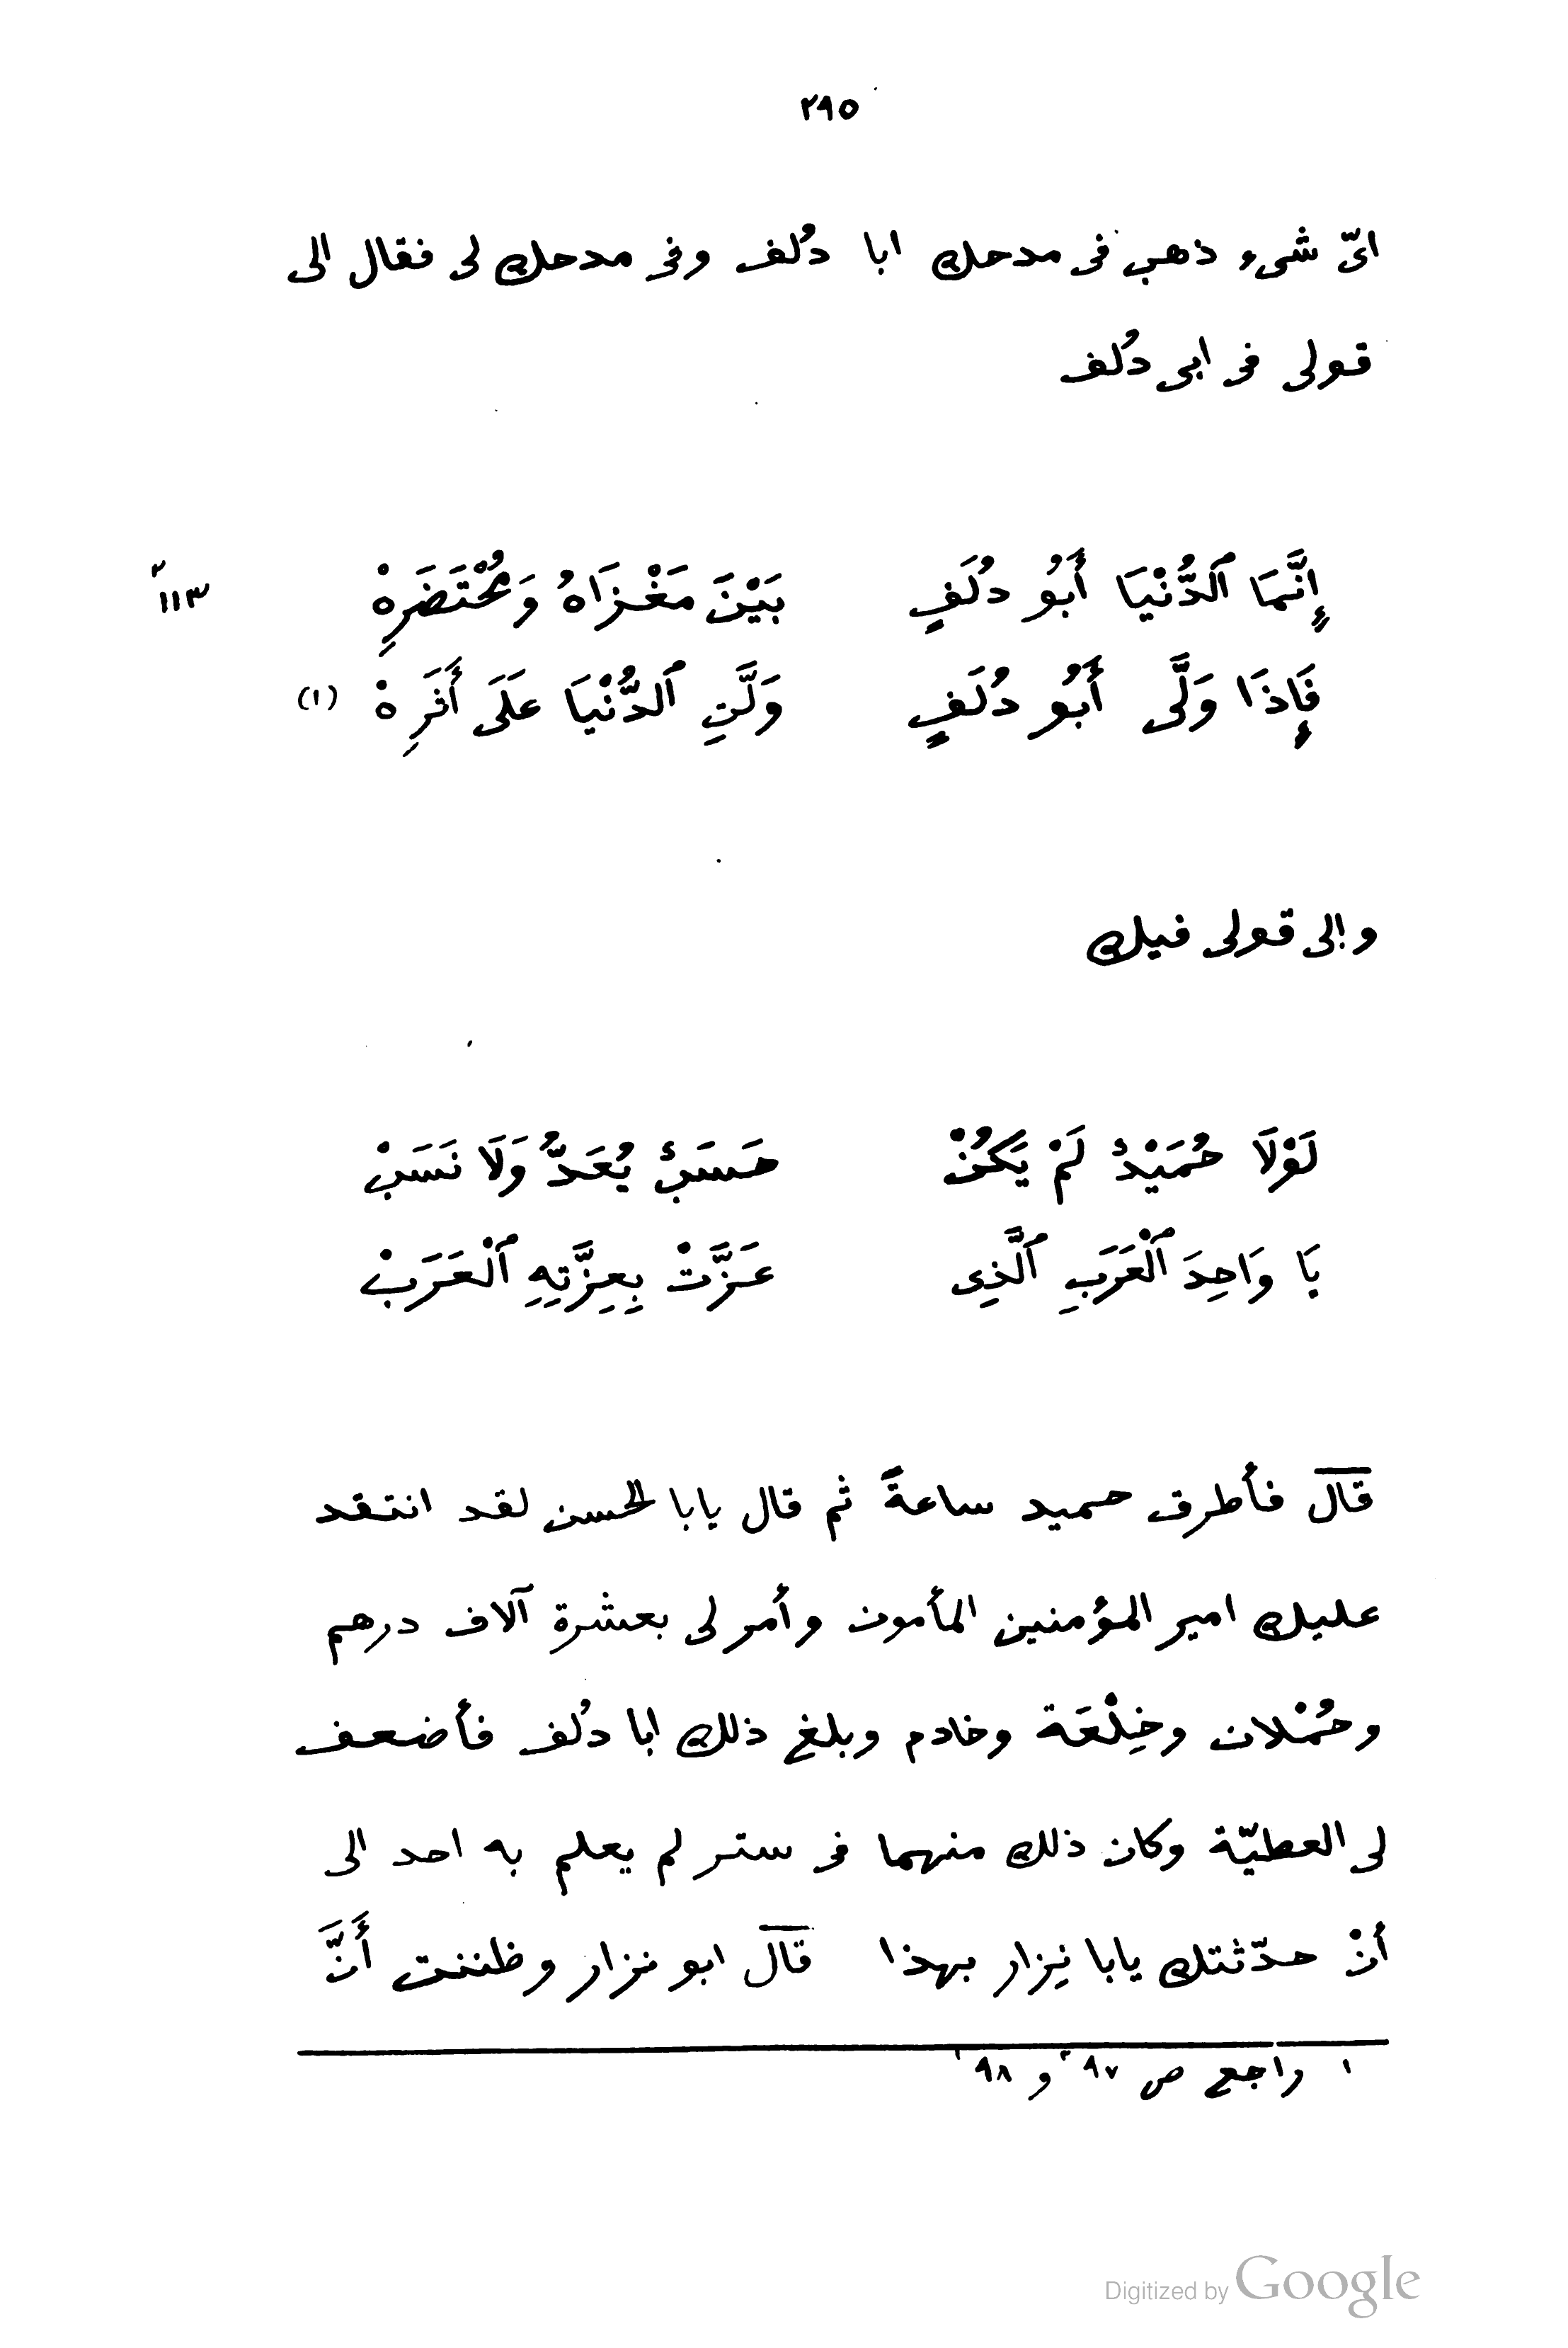 ٢٩٥
اىّ شىء ذهب فى مدحك ابا دُلف وفى مدحك لى فقال الى
قولى فى ابى دُلف
إِنَّمَا ٱلدُّنْيَا أَبُو دُلَفٍ بَيْنَ مَغْزَاهُ وَمُحْتَضَرِهْ
١١٣ ٢
فَإِذَا وَلَّى أَبُو دُلَفٍ وَلَّتِ ٱلدُّنْيَا عَلَى أَثَرِهْ (١)
والى قولى فيك
لَوْلَا حُمَيْدٌ لَمْ يَكُنْ حَسَبٌ يُعَدُّ وَلَا نَسَبْ
يَا وَاحِدَ ٱلْعَرَبِ ٱلَّذِى عَزَّتْ بِعِزَّتِهِ ٱلْعَرَبْ
قال فأطرق حميد ساعةً ثم قال يابا الحسن لقد انتقد
عليك امير المؤمنين المأمون وأمر لى بعشرة آلاف درهم
وحُمْلان وخِلْعَة وخادم وبلغ ذلك ابا دُلف فأضعف
لى العطيّة وكان ذلك منهما فى ستر لم يعلم به احد الى
أنْ حدّثتك يابا نِزار بهذا قال ابو نزار وظننت أَنَّ
١ راجع ص ٩٧ ٢ و ٩٨ ١
Digitized by Google